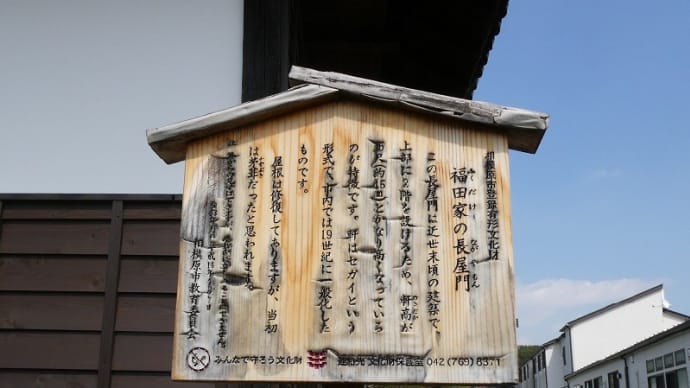 相模原市登録有形文化財
福田家の長屋門
この長屋門は近世末頃の建築で、
上部に2階を設けるため、軒高が
15尺(約4.5m)とかなり高くなっている
のが特徴です。軒はセガイという
形式で、市内では19世紀に一般化した
ものです。
屋根は修復してありますが、当初
は茅葺だったと思われます。
相模原市教育委員会
みんなで守ろう文化財
連絡先 文化財保護室 042(769)8371